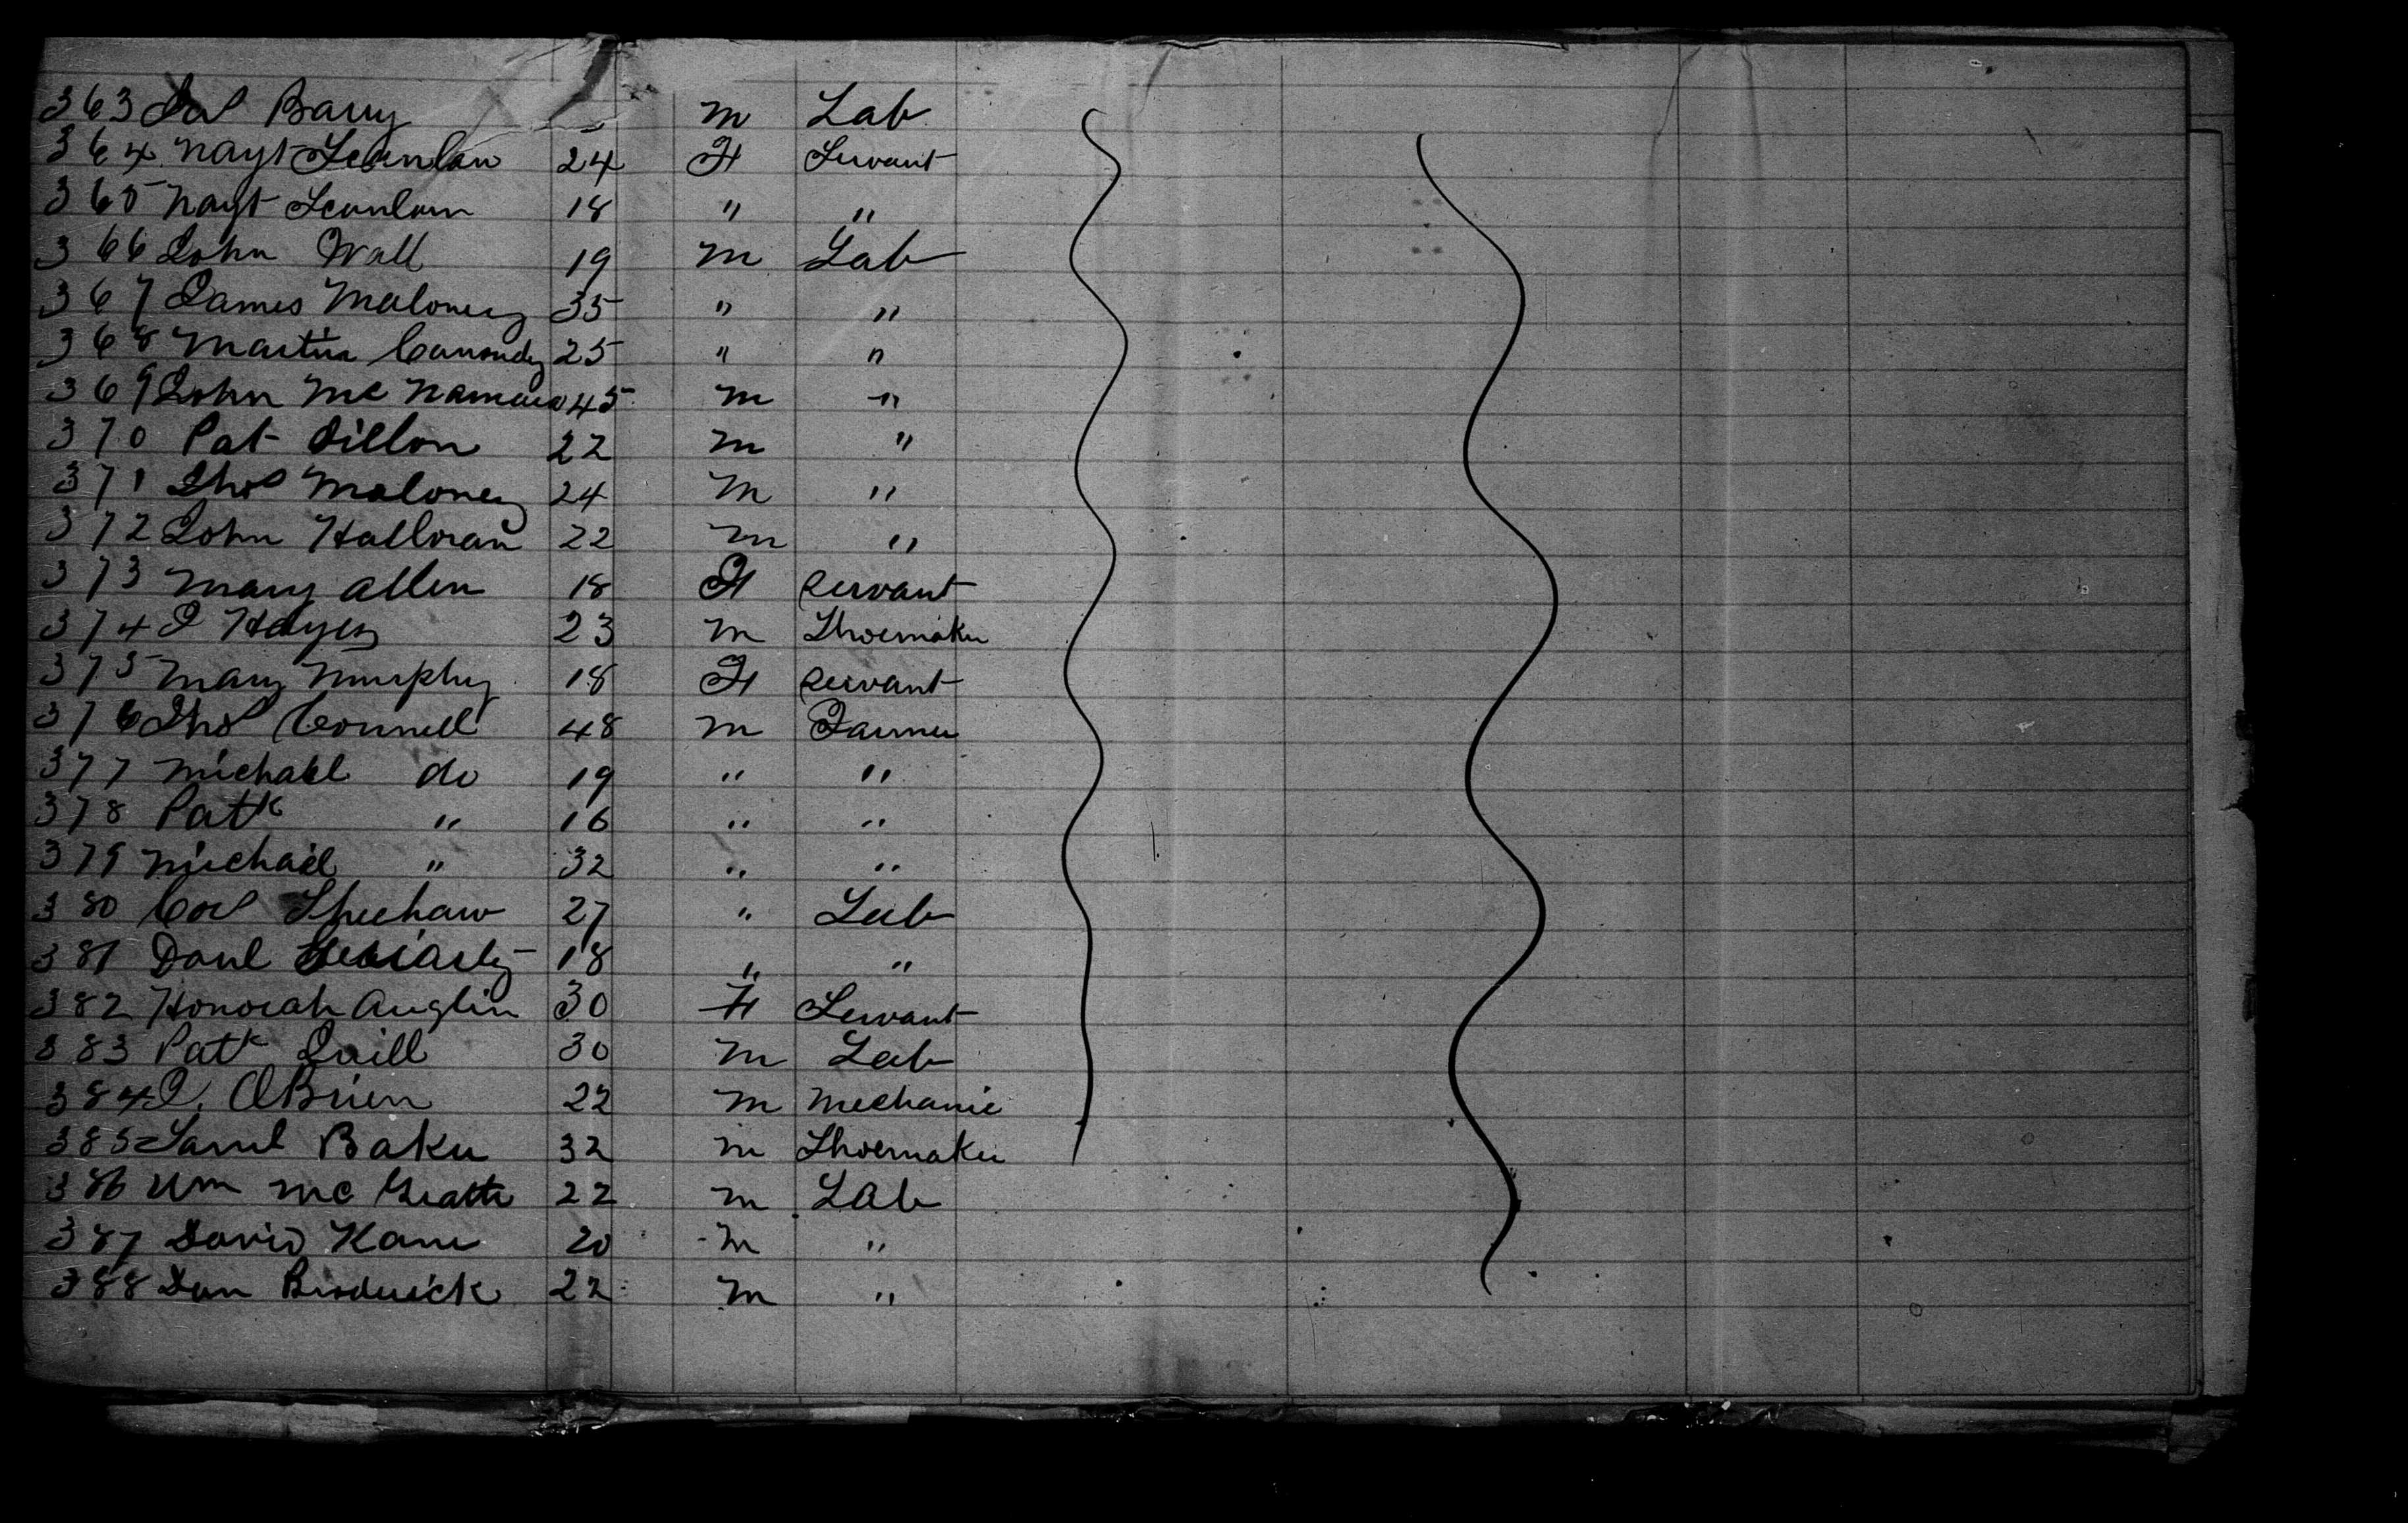 363 Jas Barry m Lab
364 Mayt Scanlan 24 F Servant
365 Mayt Scanlan 18 " "
366 John Wall 19 m Lab
367 James Maloney 35 " "
368 Martin 25 " "
369 John Mc Namara 45 m "
370 Pat Dillon 22 m "
371 Thos Maloney 24 m "
372 John Halloran 22 m "
373 Mary Allen 18 F Servant
374 J Hayes 23 m Shoemaker
375 Mary Murphy 18 F Servant
376 Thos Connell 48 m Farmer
377 Michael do 19 " "
378 Patk " 16 " "
379 Michael " 32 " "
380 Cor Sheehan 27 " Lab
381 Danl 18 " "
382 Honorah Anglin 30 F Servant
383 Patk Quill 30 m Lab
384 J. OBrien 22 m Mechanic
385 Saml Baker 32 m Shoemaker
386 Wm Mc Grath 22 m Lab
387 David Kane 20 m "
388 Dan Broderick 22 m "